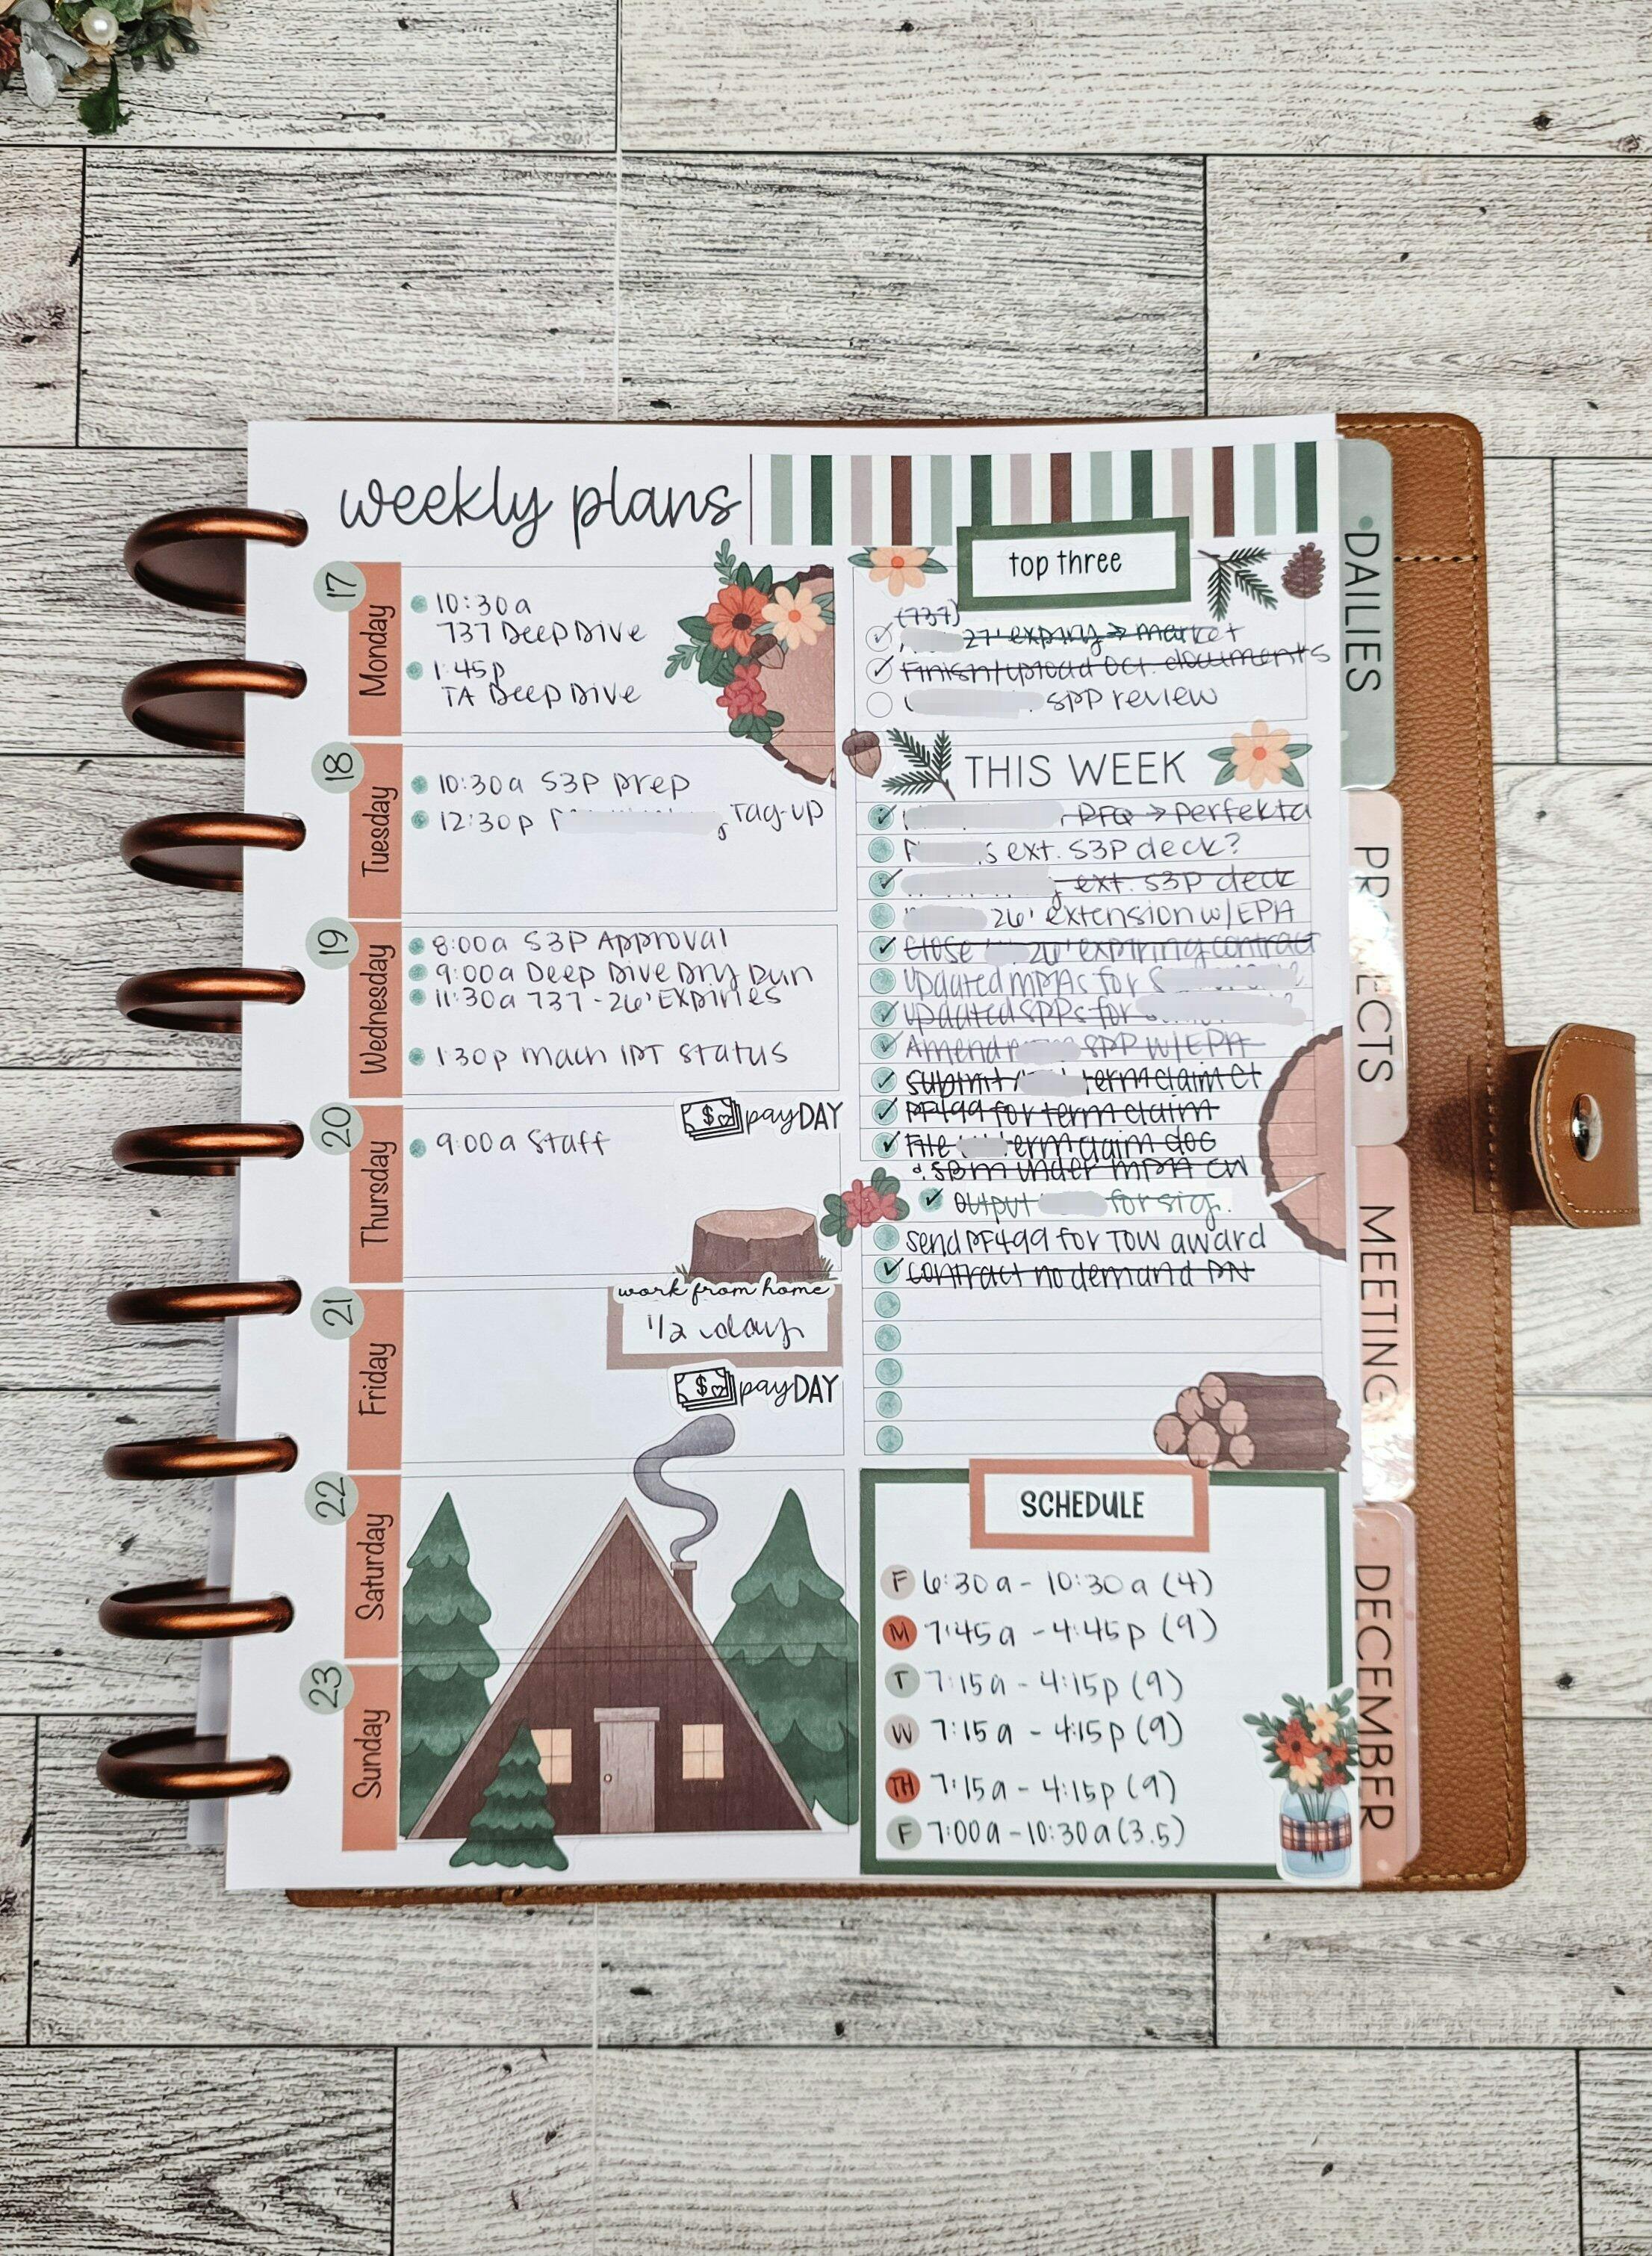 weekly plans
17
Monday
10:30a
737 Deep Dive
1:45p
TA Deep Dive
18
Tuesday
10:30a S3P prep
12:30p Tag-up
19
Wednesday
8:00a S3P Approval
9:00a Deep Dive Dry Run
11:30a 737 - 26' Expiries
1:30p mach IPT status
20
Thursday
payDAY
9:00a Staff
21
Friday
work from home
1/2 day
payDAY
22
Saturday
23
Sunday
top three
(737)
27' expiry → market
Finish/upload Oct. documents
SPP review
THIS WEEK
RFQ → Perfekta
ext. S3P deck?
ext. S3P deck
26' extension w/EPA
Close 26' expiring contract
Updated MPIAs for
Updated SPPs for
Amend SPP w/EPA
Submit term claim ct
PF499 for term claim
File term claim doc
SBM under MPIA CW
output for sig.
Send PF499 for TOW award
Contract no demand PN
SCHEDULE
F 6:30a - 10:30a (4)
M 7:45a - 4:45p (9)
T 7:15a - 4:15p (9)
W 7:15a - 4:15p (9)
TH 7:15a - 4:15p (9)
F 7:00a - 10:30a (3.5)
DAILIES
PR ECTS
MEETING
DECEMBER